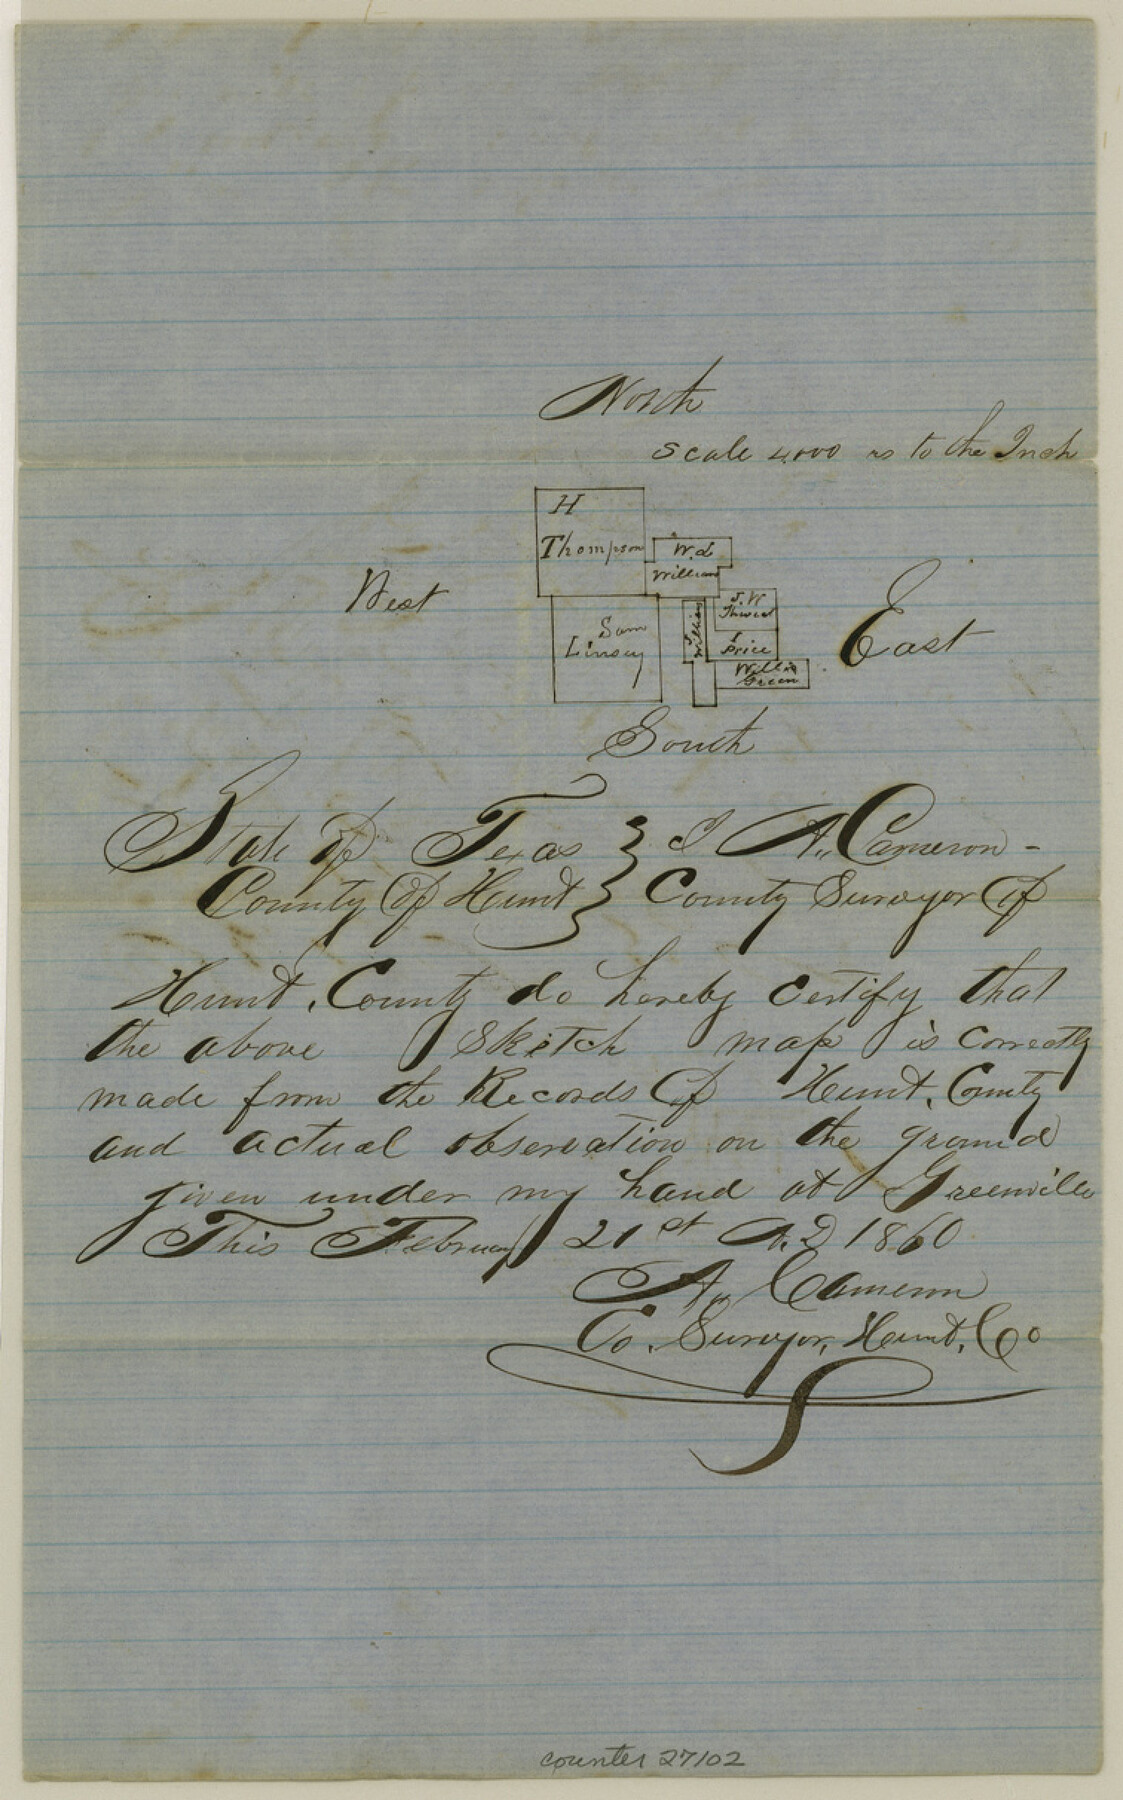 North
Scale 4000 vs to the Inch
H
Thompson
W. L
William
West
J. W
East
Sam
Linsey
J. William
J
Price
Willis
Green
South
State of Texas } I A,, Cameron -
County Of Hunt } County Surveyor Of
Hunt, County do hereby certify that
the above Sketch map is correctly
made from the Records Of Hunt, County
and actual observation on the ground
given under my hand at Greenville
This February 21st A. D 1860
A,, Cameron
Co. Surveyor, Hunt, Co
counter 27102